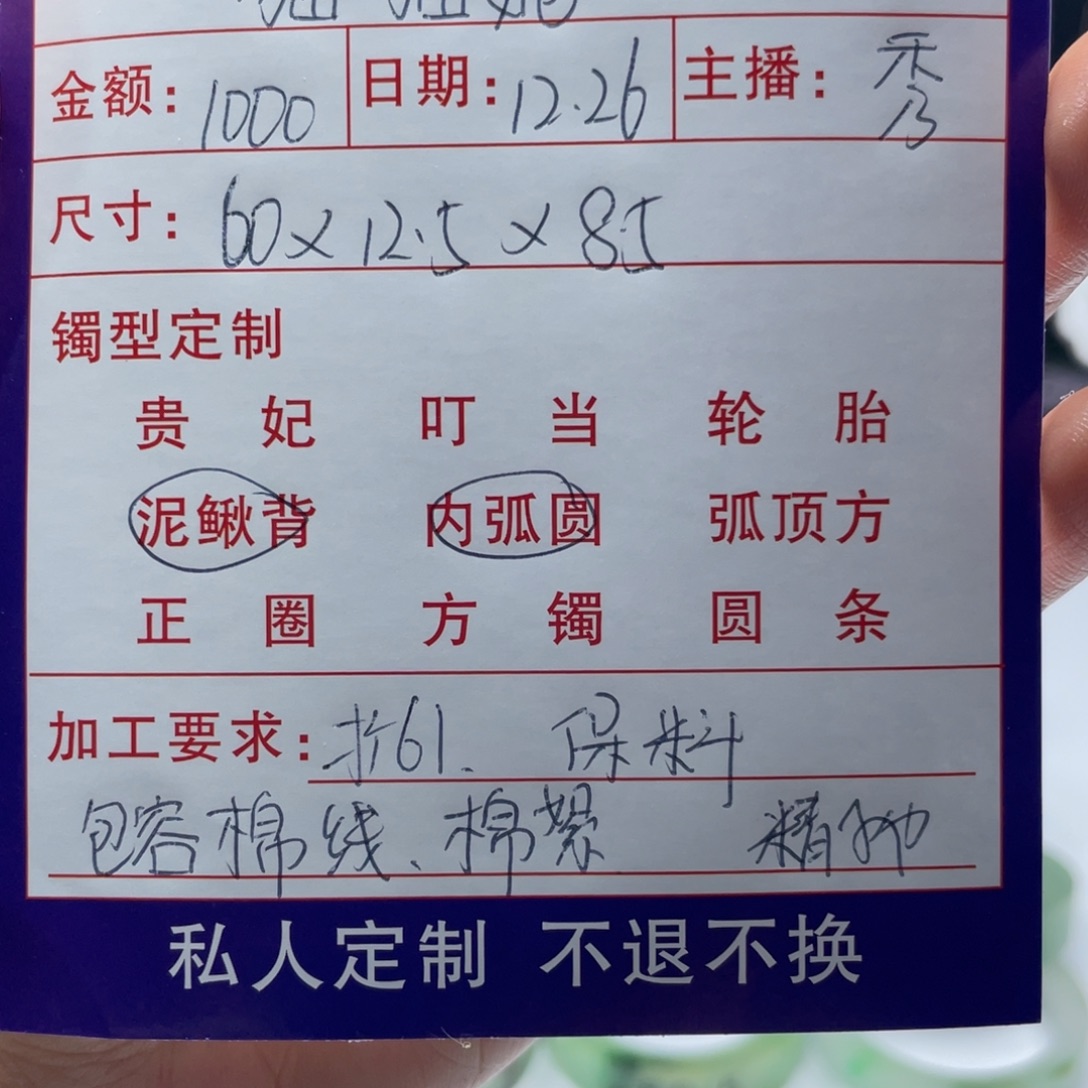 金额: 1000 日期: 12.26 主播: 秀
尺寸: 60×12.5×8.5
镯型定制
贵妃 叮当 轮胎
泥鳅背 内弧圆 弧顶方
正圈 方镯 圆条
加工要求: 折61. 保料
包容棉线、棉絮 精抛
私人定制 不退不换